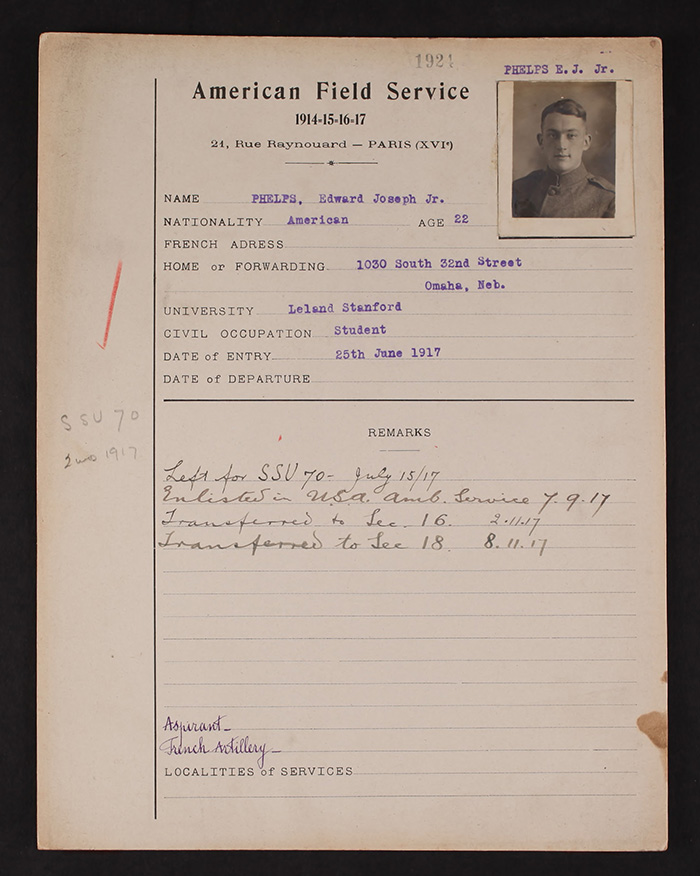 1921
PHELPS E.J. Jr.
American Field Service
1914-15-16-17
21, Rue Raynouard — PARIS (XVIe)
NAME PHELPS, Edward Joseph Jr.
NATIONALITY American AGE 22
FRENCH ADRESS
HOME or FORWARDING 1030 South 32nd Street
Omaha, Neb.
UNIVERSITY Leland Stanford
CIVIL OCCUPATION Student
DATE of ENTRY 25th June 1917
DATE of DEPARTURE
SSU 70
2 mos 1917.
REMARKS
Left for SSU 70 - July 15/17
Enlisted in U.S.A. Amb. Service 7.9.17
Transferred to Sec. 16. 2.11.17
Transferred to Sec 18. 8.11.17
Aspirant -
French Artillery -
LOCALITIES of SERVICES